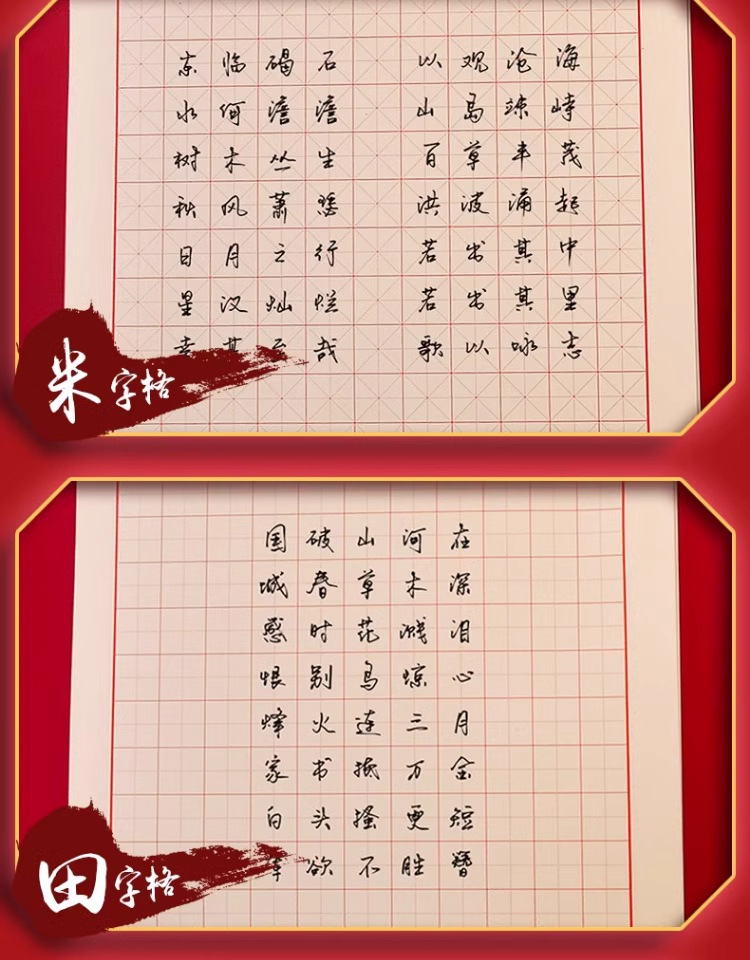 东临碣石 以观沧海
水何澹澹 山岛竦峙
树木丛生 百草丰茂
秋风萧瑟 洪波涌起
日月之行 若出其中
星汉灿烂 若出其里
幸甚至哉 歌以咏志
米字格
国破山河在
城春草木深
感时花溅泪
恨别鸟惊心
烽火连三月
家书抵万金
白头搔更短
浑欲不胜簪
田字格